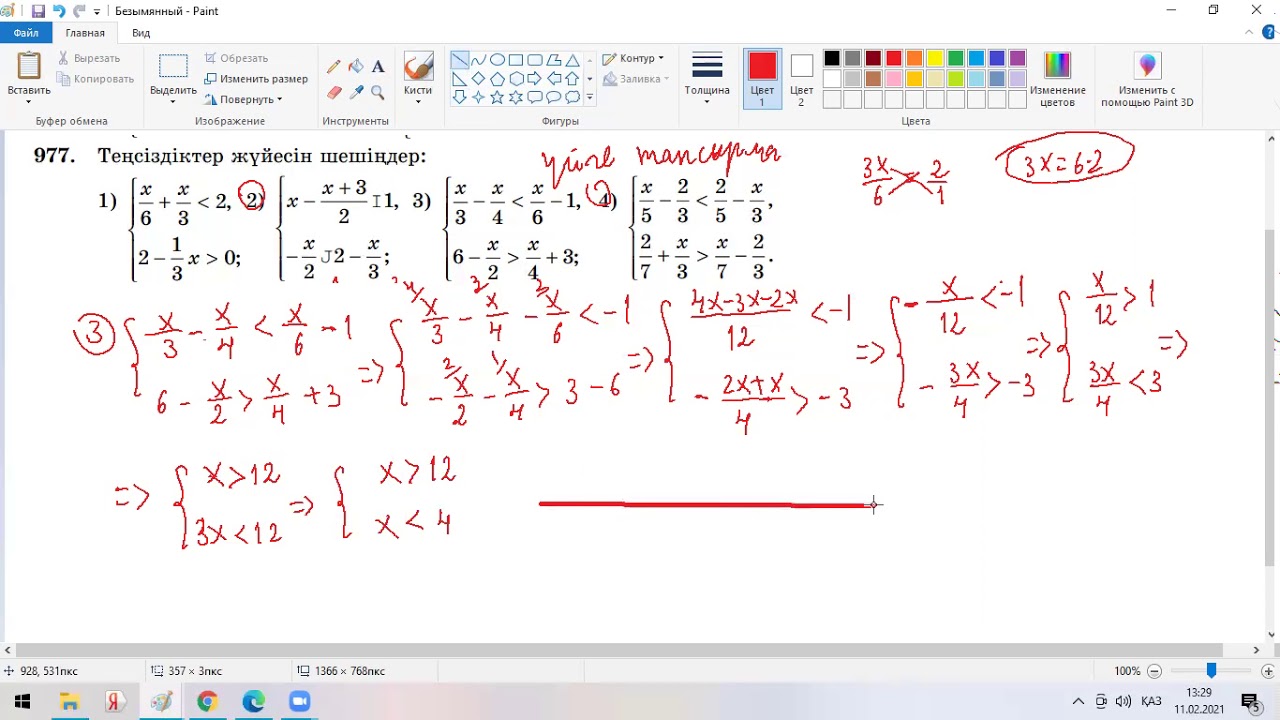 Безымянный - Paint
Файл Главная Вид
Вставить Вырезать Копировать
Буфер обмена
Выделить Обрезать Изменить размер Повернуть
Изображение
Инструменты
Кисти
Контур Заливка
Фигуры
Толщина
Цвет 1 Цвет 2
Изменение цветов
Цвета
Изменить с помощью Paint 3D
977. Теңсіздіктер жүйесін шешіңдер:
үйге тапсырма
3x/6 2/1
3x=6·2
1) { x/6 + x/3 < 2, 2 - 1/3 x > 0;
2) { x - (x+3)/2 1, -x/2 2 - x/3;
3) { x/3 - x/4 < x/6 - 1, 6 - x/2 > x/4 + 3;
4) { x/5 - 2/3 < 2/5 - x/3, 2/7 + x/3 > x/7 - 2/3.
3 { x/3 - x/4 < x/6 - 1 6 - x/2 > x/4 + 3
=> { x/3 - x/4 - x/6 < -1 -x/2 - x/4 > 3 - 6
=> { (4x-3x-2x)/12 < -1 -(2x+x)/4 > -3
=> { -x/12 < -1 -3x/4 > -3
=> { x/12 > 1 3x/4 < 3 =>
=> { x>12 3x<12
=> { x>12 x<4
928, 531пкс 357 × 3пкс 1366 × 768пкс 100%
ҚАЗ 13:29 11.02.2021 5